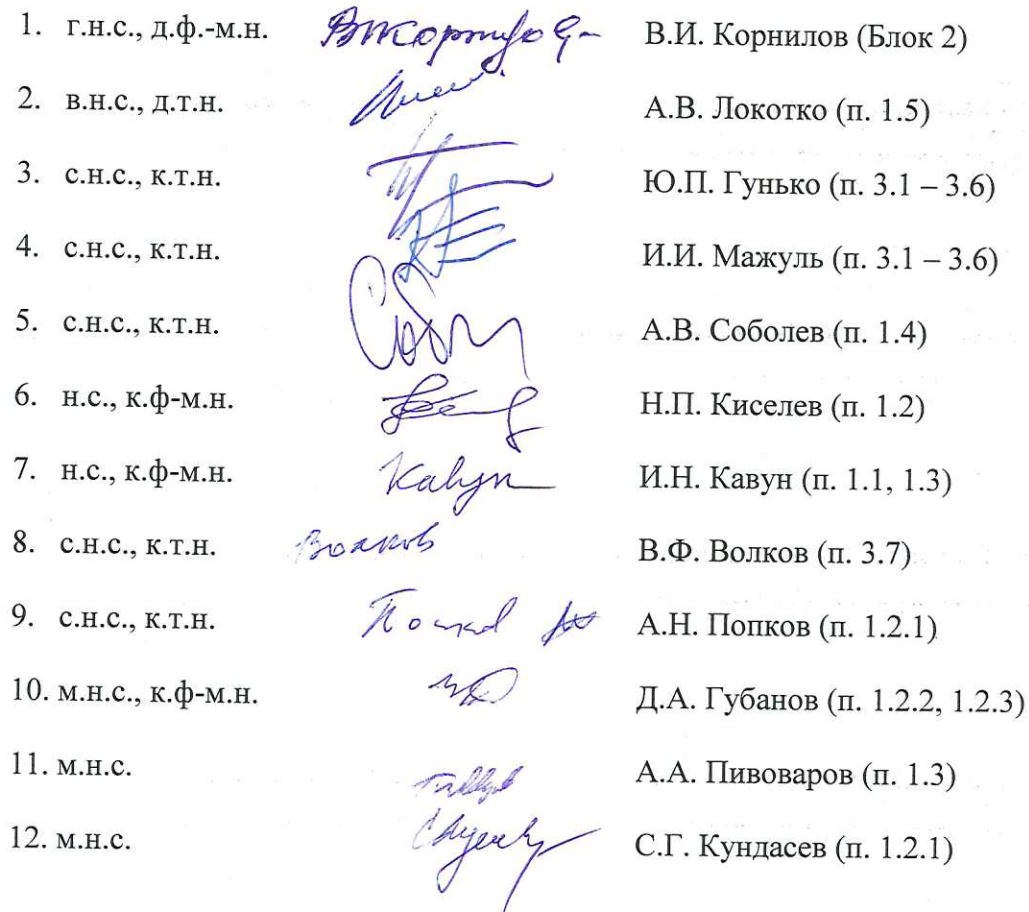 1. г.н.с., д.ф.-м.н. В.И. Корнилов (Блок 2)
2. в.н.с., д.т.н. А.В. Локотко (п. 1.5)
3. с.н.с., к.т.н. Ю.П. Гунько (п. 3.1 – 3.6)
4. с.н.с., к.т.н. И.И. Мажуль (п. 3.1 – 3.6)
5. с.н.с., к.т.н. А.В. Соболев (п. 1.4)
6. н.с., к.ф-м.н. Н.П. Киселев (п. 1.2)
7. н.с., к.ф-м.н. Кавун И.Н. Кавун (п. 1.1, 1.3)
8. с.н.с., к.т.н. Волков В.Ф. Волков (п. 3.7)
9. с.н.с., к.т.н. А.Н. Попков (п. 1.2.1)
10. м.н.с., к.ф-м.н. Д.А. Губанов (п. 1.2.2, 1.2.3)
11. м.н.с. А.А. Пивоваров (п. 1.3)
12. м.н.с. С.Г. Кундасев (п. 1.2.1)